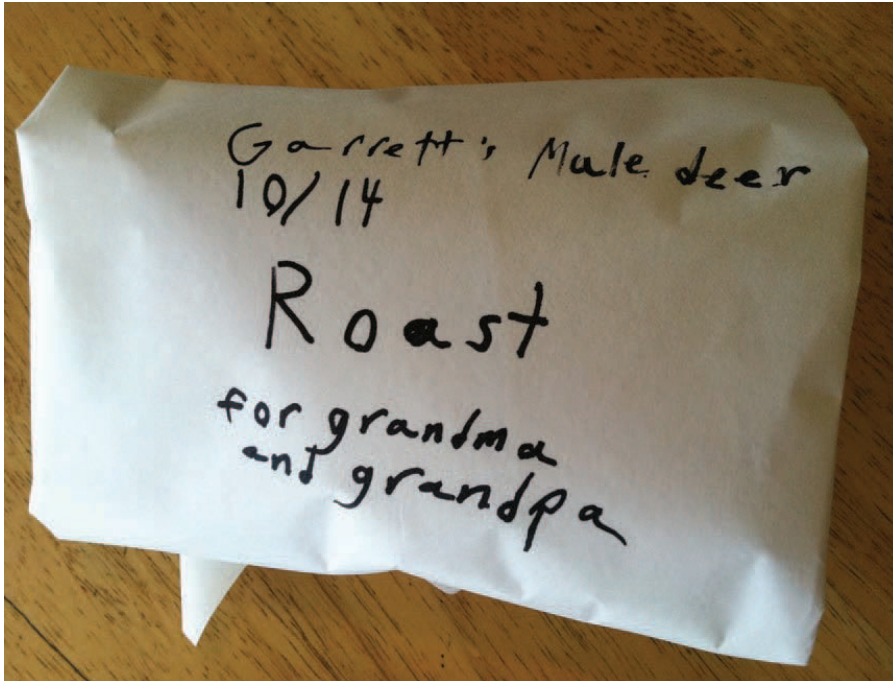 Garrett's Mule deer
10/14
Roast
for grandma
and grandpa